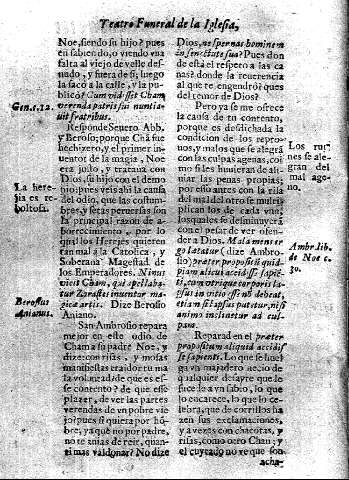 Teatro Funeral de la Iglesia,
Noe, siendo su hijo? pues
en sabiendo, o viendo vna
falta al viejo de velle des-
nudo, y fuera de si, luego
la sacò a la calle, y la pu-
blicò? Cum vidisset Cham
Gen. c. 12.
verenda patris sui nuntia-
uit fratribus.
Responde Seuero Abb.
y Beroso; porque Chã fue
hechizero, y el primer in-
uentor de la magia, Noe
era justo, y trataua con
Dios, su hijo con el demo
La here-
gia es re-
boltosa.
nio: pues veis ahi la causa
del odio, que las costum-
bres, y setas peruersas son
la principal razon de a-
borrecimiento, por lo
qual los Herejes quieren
tan mal a la Catolica, y
Soberana Magestad de
los Emperadores. Ninus
vicit Cham, qui apellaba-
tur Zarastes inuentor ma-
gicæ artis. Dize Beroso
Berosus
Anianus.
Aniano.
San Ambrosio repara
mejor en este odio de
Cham a su padre Noe, y
dize: con risa, y mofas
manifiestas traidor tu ma
la voluntad: de que es es-
se contento? de que esse
plazer, de ver las partes
verendas de vn pobre vie
jo: pues si quiera por hõ-
bre, ya que no por padre,
no te auias de reir, quan-
ti mas valdonar? No dize
Dios, ne spernas hominem
in senectute sua? Pues don
de està el respeto a las ca
nas? donde la reuerencia
al que te engendrò? ques
del temor de Dios?
Pero ya se me ofrece
la causa de tu contento,
porque es desdichada la
condicion de los repro-
uos, y malos que se alegran
Los rui-
nes se ale-
gran del
mal age-
no.
con las culpas agenas, coi
mo si les huuieran de ali-
uiar las penas propias:
por esso aures con la risa
del mal del otro se multi
plican los de cada vno,
los quales se disminuyen
con el pesar de ver ofen-
der a Dios. Mala mens er
go lætatur (dize Ambro-
Ambr. lib.
de Noe c.
30.
sio) præter propositi quid-
piam alicui accidisse sapiẽ
ti, cum vtrique corporis la-
psus
etiam si lapsus putetur, nisi
animo inclinetur ad cul-
pam.
Reparad en el præter
propositum aliquid accidis
se sapienti. Lo que se huel
ga vn majadero necio de
qualquier desayre que le
sucede a vn sabio, lo que
lo encarece, lo que lo ce-
lebra, que de corrillos ha
zen sus exclamaciones,
y a vezes con chacotas, y
risas, como otro Cham; y
el cuytado no ve que son
acha-